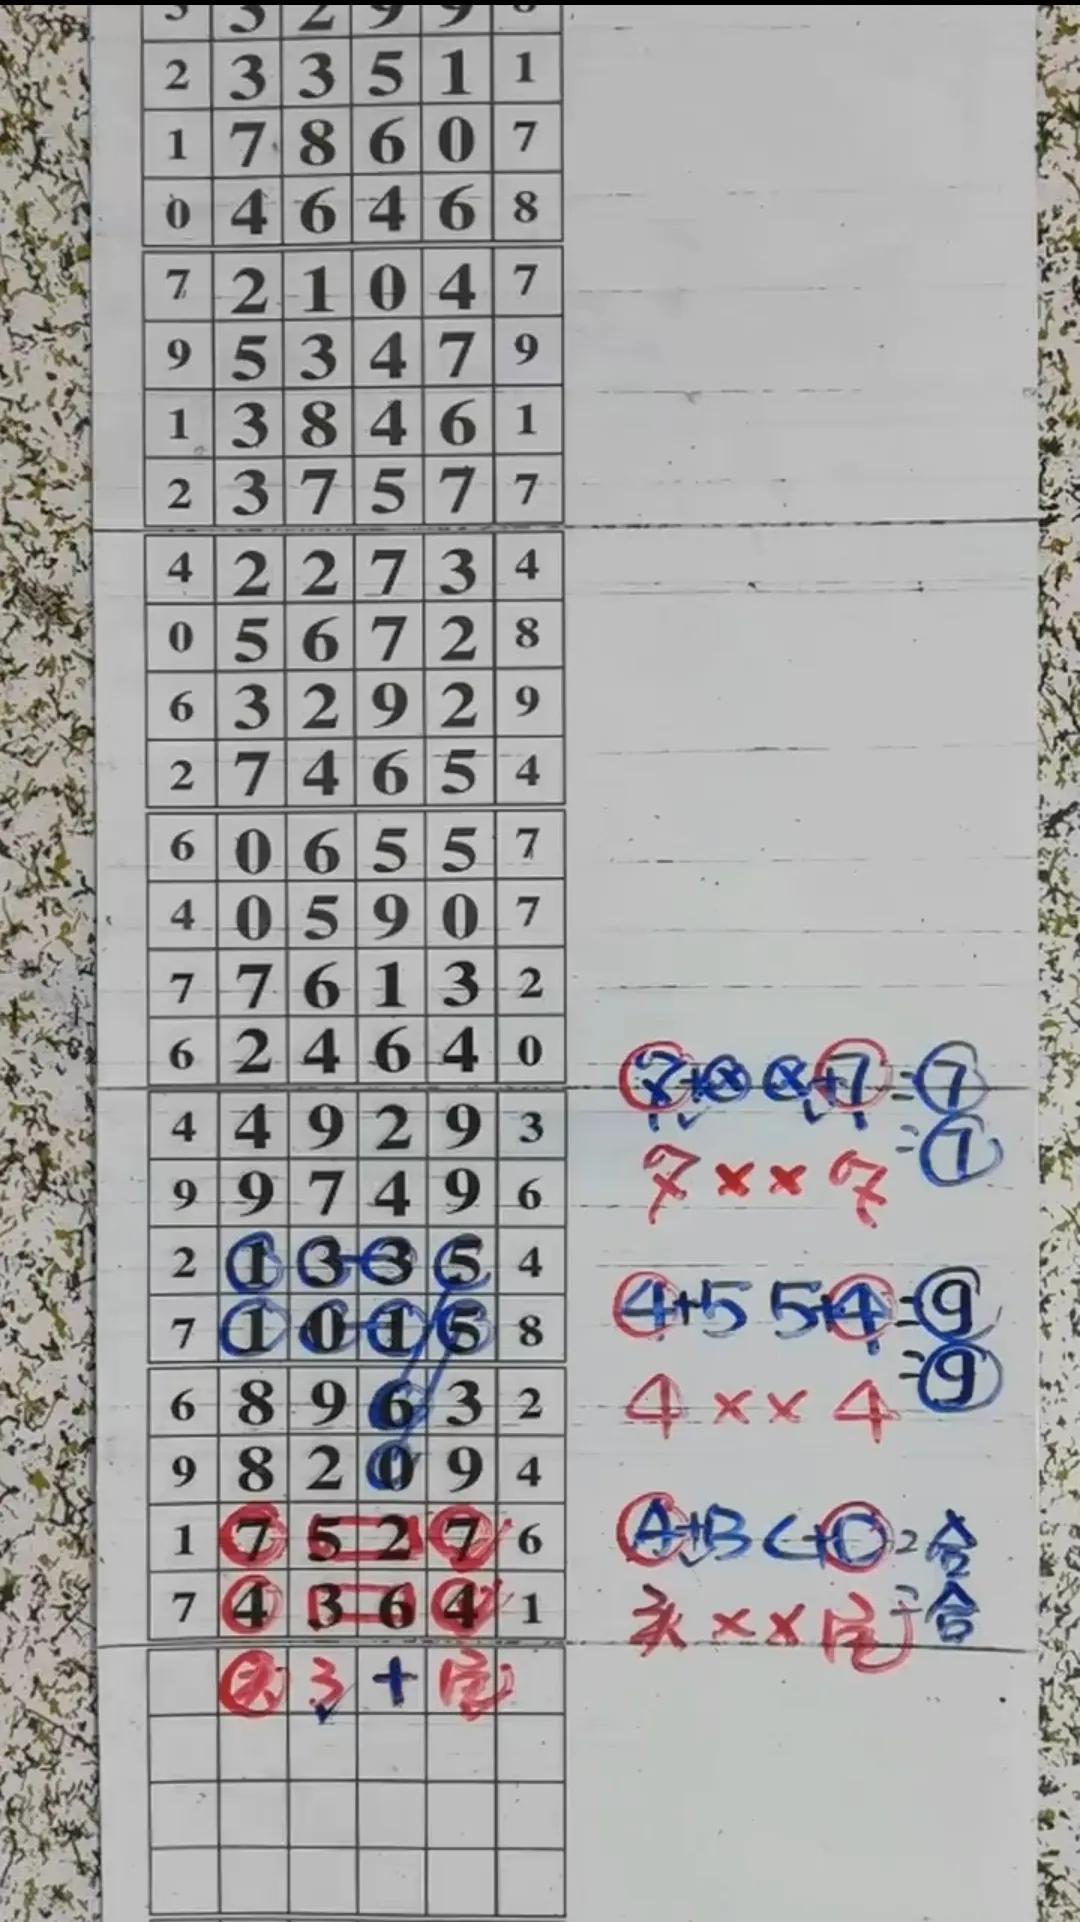 2 3 3 5 1 1
1 7 8 6 0 7
0 4 6 4 6 8
7 2 1 0 4 7
9 5 3 4 7 9
1 3 8 4 6 1
2 3 7 5 7 7
4 2 2 7 3 4
0 5 6 7 2 8
6 3 2 9 2 9
2 7 4 6 5 4
6 0 6 5 5 7
4 0 5 9 0 7
7 7 6 1 3 2
6 2 4 6 4 0
4 4 9 2 9 3
9 9 7 4 9 6
2 1 3 3 5 4
7 1 0 1 5 8
6 8 9 6 3 2
9 8 2 0 9 4
1 7 5 2 7 6
7 4 3 6 4 1
头 3 + 尾
=7
=7
7 × × 7
4+5 5+4=9
=9
4 × × 4
A+B C+D=合
头 × × 尾=合